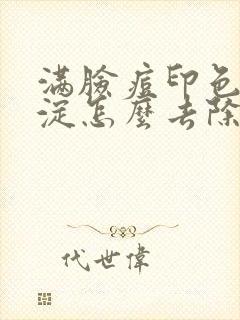 满臉痘印色
淀怎麼去除
代世偉